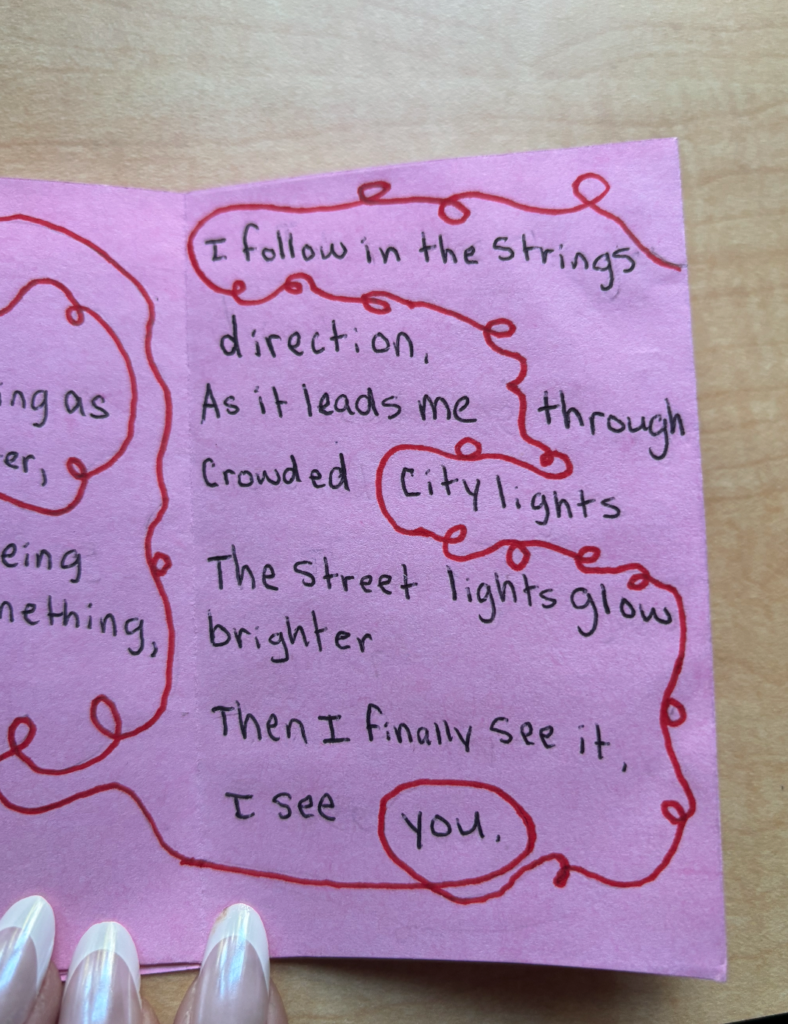 ing as
er,
eing
nething,
I follow in the strings
direction,
As it leads me through
Crowded City lights
The street lights glow
brighter
Then I finally see it,
I see you.